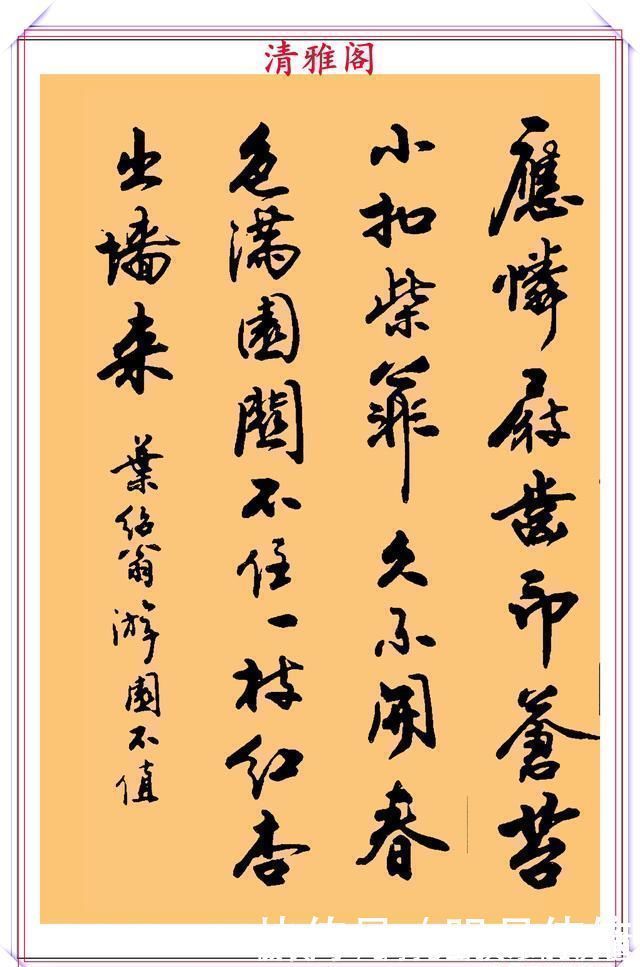 清雅阁
應憐屐齒印蒼苔
小扣柴扉久不開春
色滿園關不住一枝紅杏
出墻来
葉紹翁游園不值